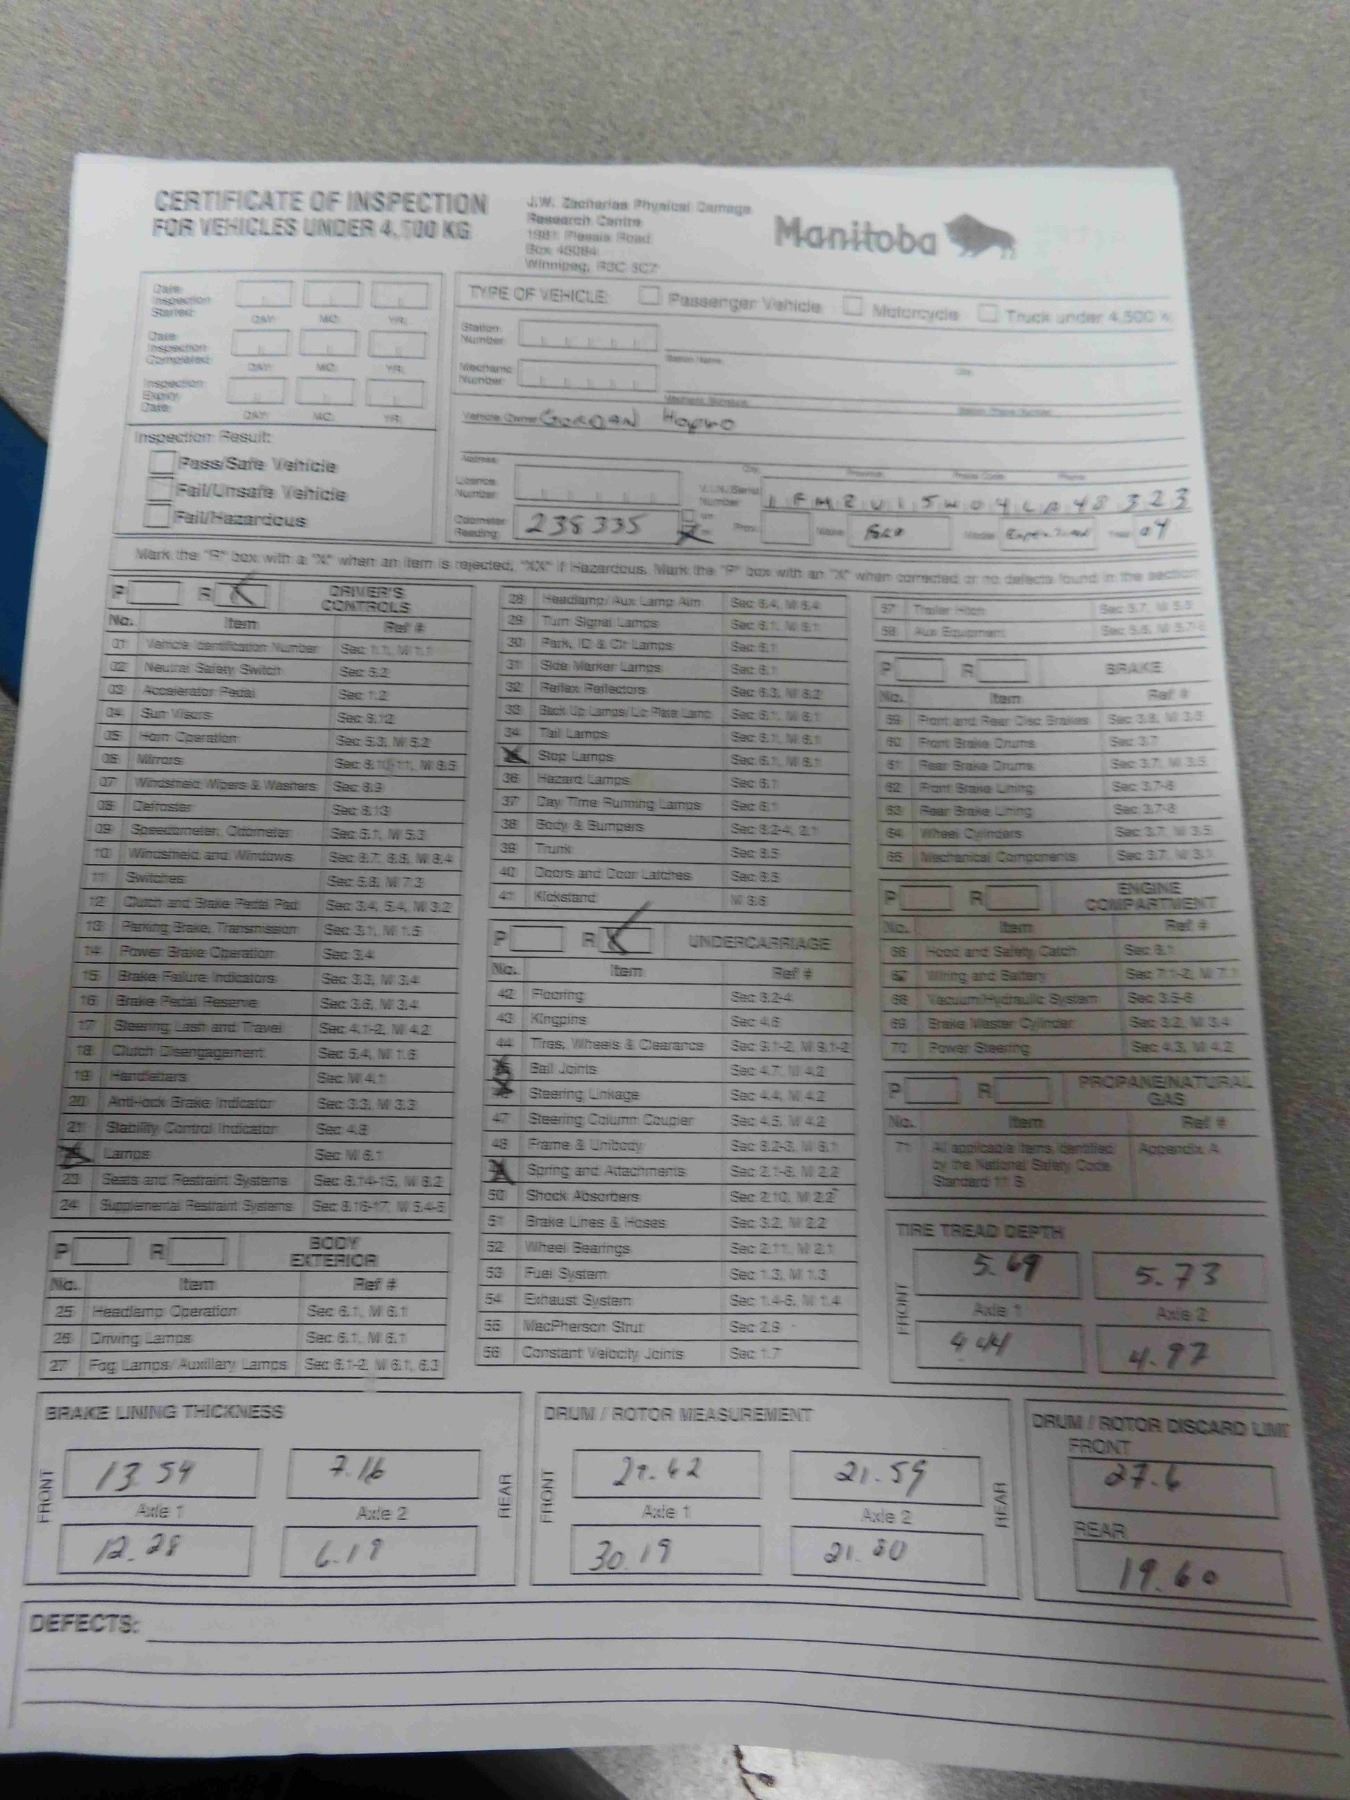 CERTIFICATE OF INSPECTION
FOR VEHICLES UNDER 4,500 KG
J.W. Zacharias Physical Damage
Research Centre
1981 Plessis Road
Box 45064
Winnipeg, R3C 5C7
Manitoba
Date
Inspection
Started:
DAY MO. YR.
Date
Inspection
Completed:
DAY MO. YR.
Inspection
Expiry
Date
DAY MO. YR.
Inspection Result:
Pass/Safe Vehicle
Fail/Unsafe Vehicle
Fail/Hazardous
TYPE OF VEHICLE: Passenger Vehicle Motorcycle Truck under 4,500 K
Station
Number
Station Name City
Mechanic
Number
Mechanic Signature Station Phone Number
Vehicle Owner
Address City Province Postal Code Phone
Licence
Number
V.I.N./Serial
Number 1FM2U15W04LA48323
Odometer
Reading 238335
Prov. Make Model Year 04
Mark the "R" box with a "X" when an item is rejected, "XX" if Hazardous. Mark the "P" box with an "X" when corrected or no defects found in the section
P R DRIVER'S
CONTROLS
No. Item Ref #
01 Vehicle Identification Number Sec 1.1, M 1.1
02 Neutral Safety Switch Sec 5.2
03 Accelerator Pedal Sec 1.2
04 Sun Visors Sec 8.12
05 Horn Operation Sec 5.3, M 5.2
06 Mirrors Sec 8.10-11, M 8.5
07 Windshield Wipers & Washers Sec 8.9
08 Defroster Sec 8.13
09 Speedometer, Odometer Sec 5.1, M 5.3
10 Windshield and Windows Sec 8.7, 8.8, M 8.4
11 Switches Sec 5.8, M 7.3
12 Clutch and Brake Pedal Pad Sec 3.4, 5.4, M 3.2
13 Parking Brake, Transmission Sec 3.1, M 1.5
14 Power Brake Operation Sec 3.4
15 Brake Failure Indicators Sec 3.3, M 3.4
16 Brake Pedal Reserve Sec 3.6, M 3.4
17 Steering Lash and Travel Sec 4.1-2, M 4.2
18 Clutch Disengagement Sec 5.4, M 1.6
19 Handlebars Sec M 4.1
20 Anti-lock Brake Indicator Sec 3.3, M 3.3
21 Stability Control Indicator Sec 4.8
Lamps Sec M 6.1
23 Seats and Restraint Systems Sec 8.14-15, M 8.2
24 Supplemental Restraint Systems Sec 8.16-17, M 5.4-5
P R BODY
EXTERIOR
No. Item Ref #
25 Headlamp Operation Sec 6.1, M 6.1
26 Driving Lamps Sec 6.1, M 6.1
27 Fog Lamps/Auxillary Lamps Sec 6.1-2, M 6.1, 6.3
28 Headlamp/Aux Lamp Aim Sec 6.4, M 6.4
29 Turn Signal Lamps Sec 6.1, M 6.1
30 Park, ID & Clr Lamps Sec 6.1
31 Side Marker Lamps Sec 6.1
32 Reflex Reflectors Sec 6.3, M 6.2
33 Back Up Lamps/Lic Plate Lamp Sec 6.1, M 6.1
34 Tail Lamps Sec 6.1, M 6.1
Stop Lamps Sec 6.1, M 6.1
36 Hazard Lamps Sec 6.1
37 Day Time Running Lamps Sec 6.1
38 Body & Bumpers Sec 8.2-4, 2.1
39 Trunk Sec 8.5
40 Doors and Door Latches Sec 8.6
41 Kickstand M 8.6
P R UNDERCARRIAGE
No. Item Ref #
42 Flooring Sec 8.2-4
43 Kingpins Sec 4.6
44 Tires, Wheels & Clearance Sec 9.1-2, M 9.1-2
Ball Joints Sec 4.7, M 4.2
Steering Linkage Sec 4.4, M 4.2
47 Steering Column Coupler Sec 4.5, M 4.2
48 Frame & Unibody Sec 8.2-3, M 8.1
Spring and Attachments Sec 2.1-8, M 2.2
50 Shock Absorbers Sec 2.10, M 2.2
51 Brake Lines & Hoses Sec 3.2, M 2.2
52 Wheel Bearings Sec 2.11, M 2.1
53 Fuel System Sec 1.3, M 1.3
54 Exhaust System Sec 1.4-6, M 1.4
55 MacPherson Strut Sec 2.9
56 Constant Velocity Joints Sec 1.7
57 Trailer Hitch Sec 5.7, M 5.5
58 Aux Equipment
P R BRAKE
No. Item Ref #
59 Front and Rear Disc Brakes Sec 3.8, M 3.5
60 Front Brake Drums Sec 3.7
61 Rear Brake Drums Sec 3.7, M 3.5
62 Front Brake Lining Sec 3.7-8
63 Rear Brake Lining Sec 3.7-8
64 Wheel Cylinders Sec 3.7, M 3.5
65 Mechanical Components Sec 3.7, M 3.1
P R ENGINE
COMPARTMENT
No. Item Ref #
66 Hood and Safety Catch Sec 8.1
67 Wiring and Battery Sec 7.1-2, M 7.1
68 Vacuum/Hydraulic System Sec 3.5-6
69 Brake Master Cylinder Sec 3.2, M 3.4
70 Power Steering Sec 4.3, M 4.2
P R PROPANE/NATURAL
GAS
No. Item Ref #
71 All applicable items, identified Appendix A
by the National Safety Code
Standard 11 B
TIRE TREAD DEPTH
FRONT
5.69 5.73
Axle 1 Axle 2
4.44 4.97
BRAKE LINING THICKNESS
FRONT REAR
13.54 7.16
Axle 1 Axle 2
12.28 6.19
DRUM / ROTOR MEASUREMENT
FRONT REAR
29.62 21.59
Axle 1 Axle 2
30.19 21.80
DRUM / ROTOR DISCARD LIMI
FRONT
27.6
REAR
19.60
DEFECTS: